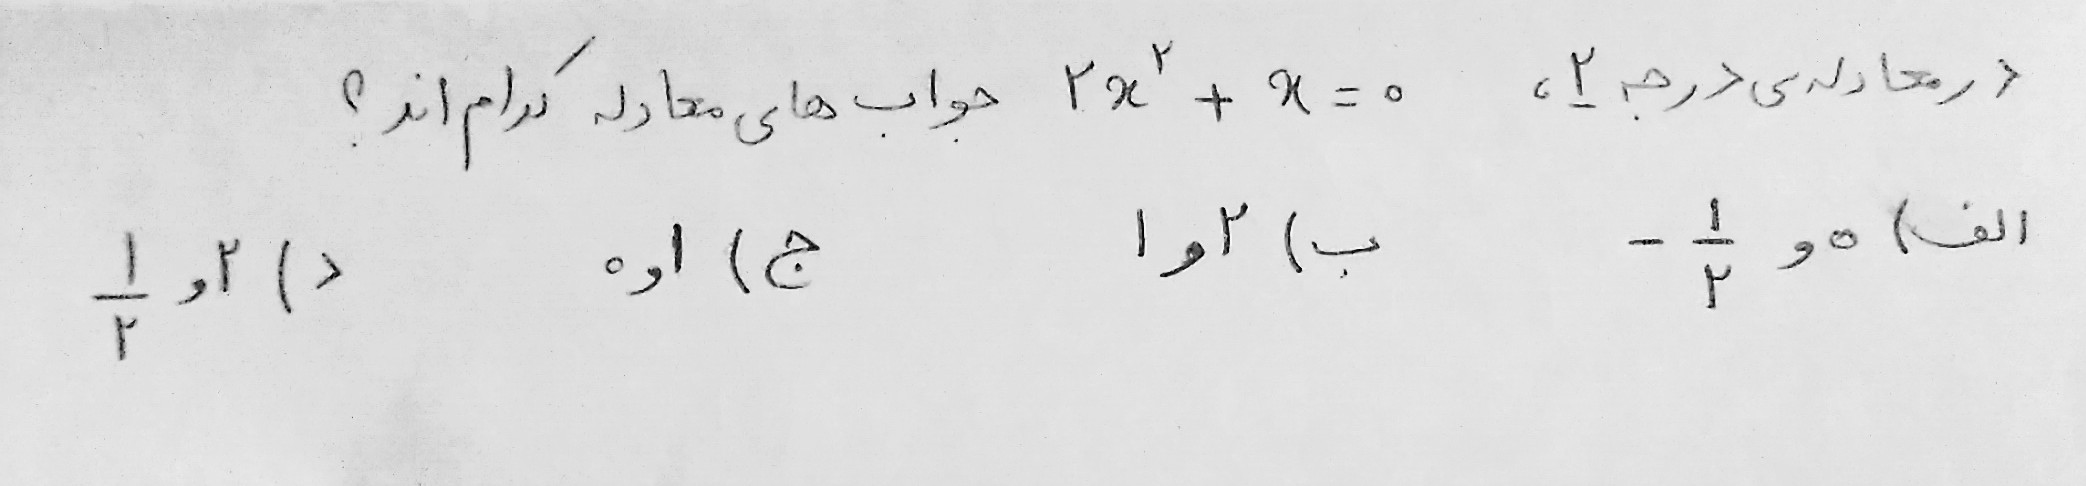 در معادله‌ی درجه ۲، ۲x² + x = ۰ جواب های معادله کدام اند؟
الف) ۰ و -۱/۲ ب) ۲ و ۱ ج) ۱ و ۰ د) ۲ و ۱/۲